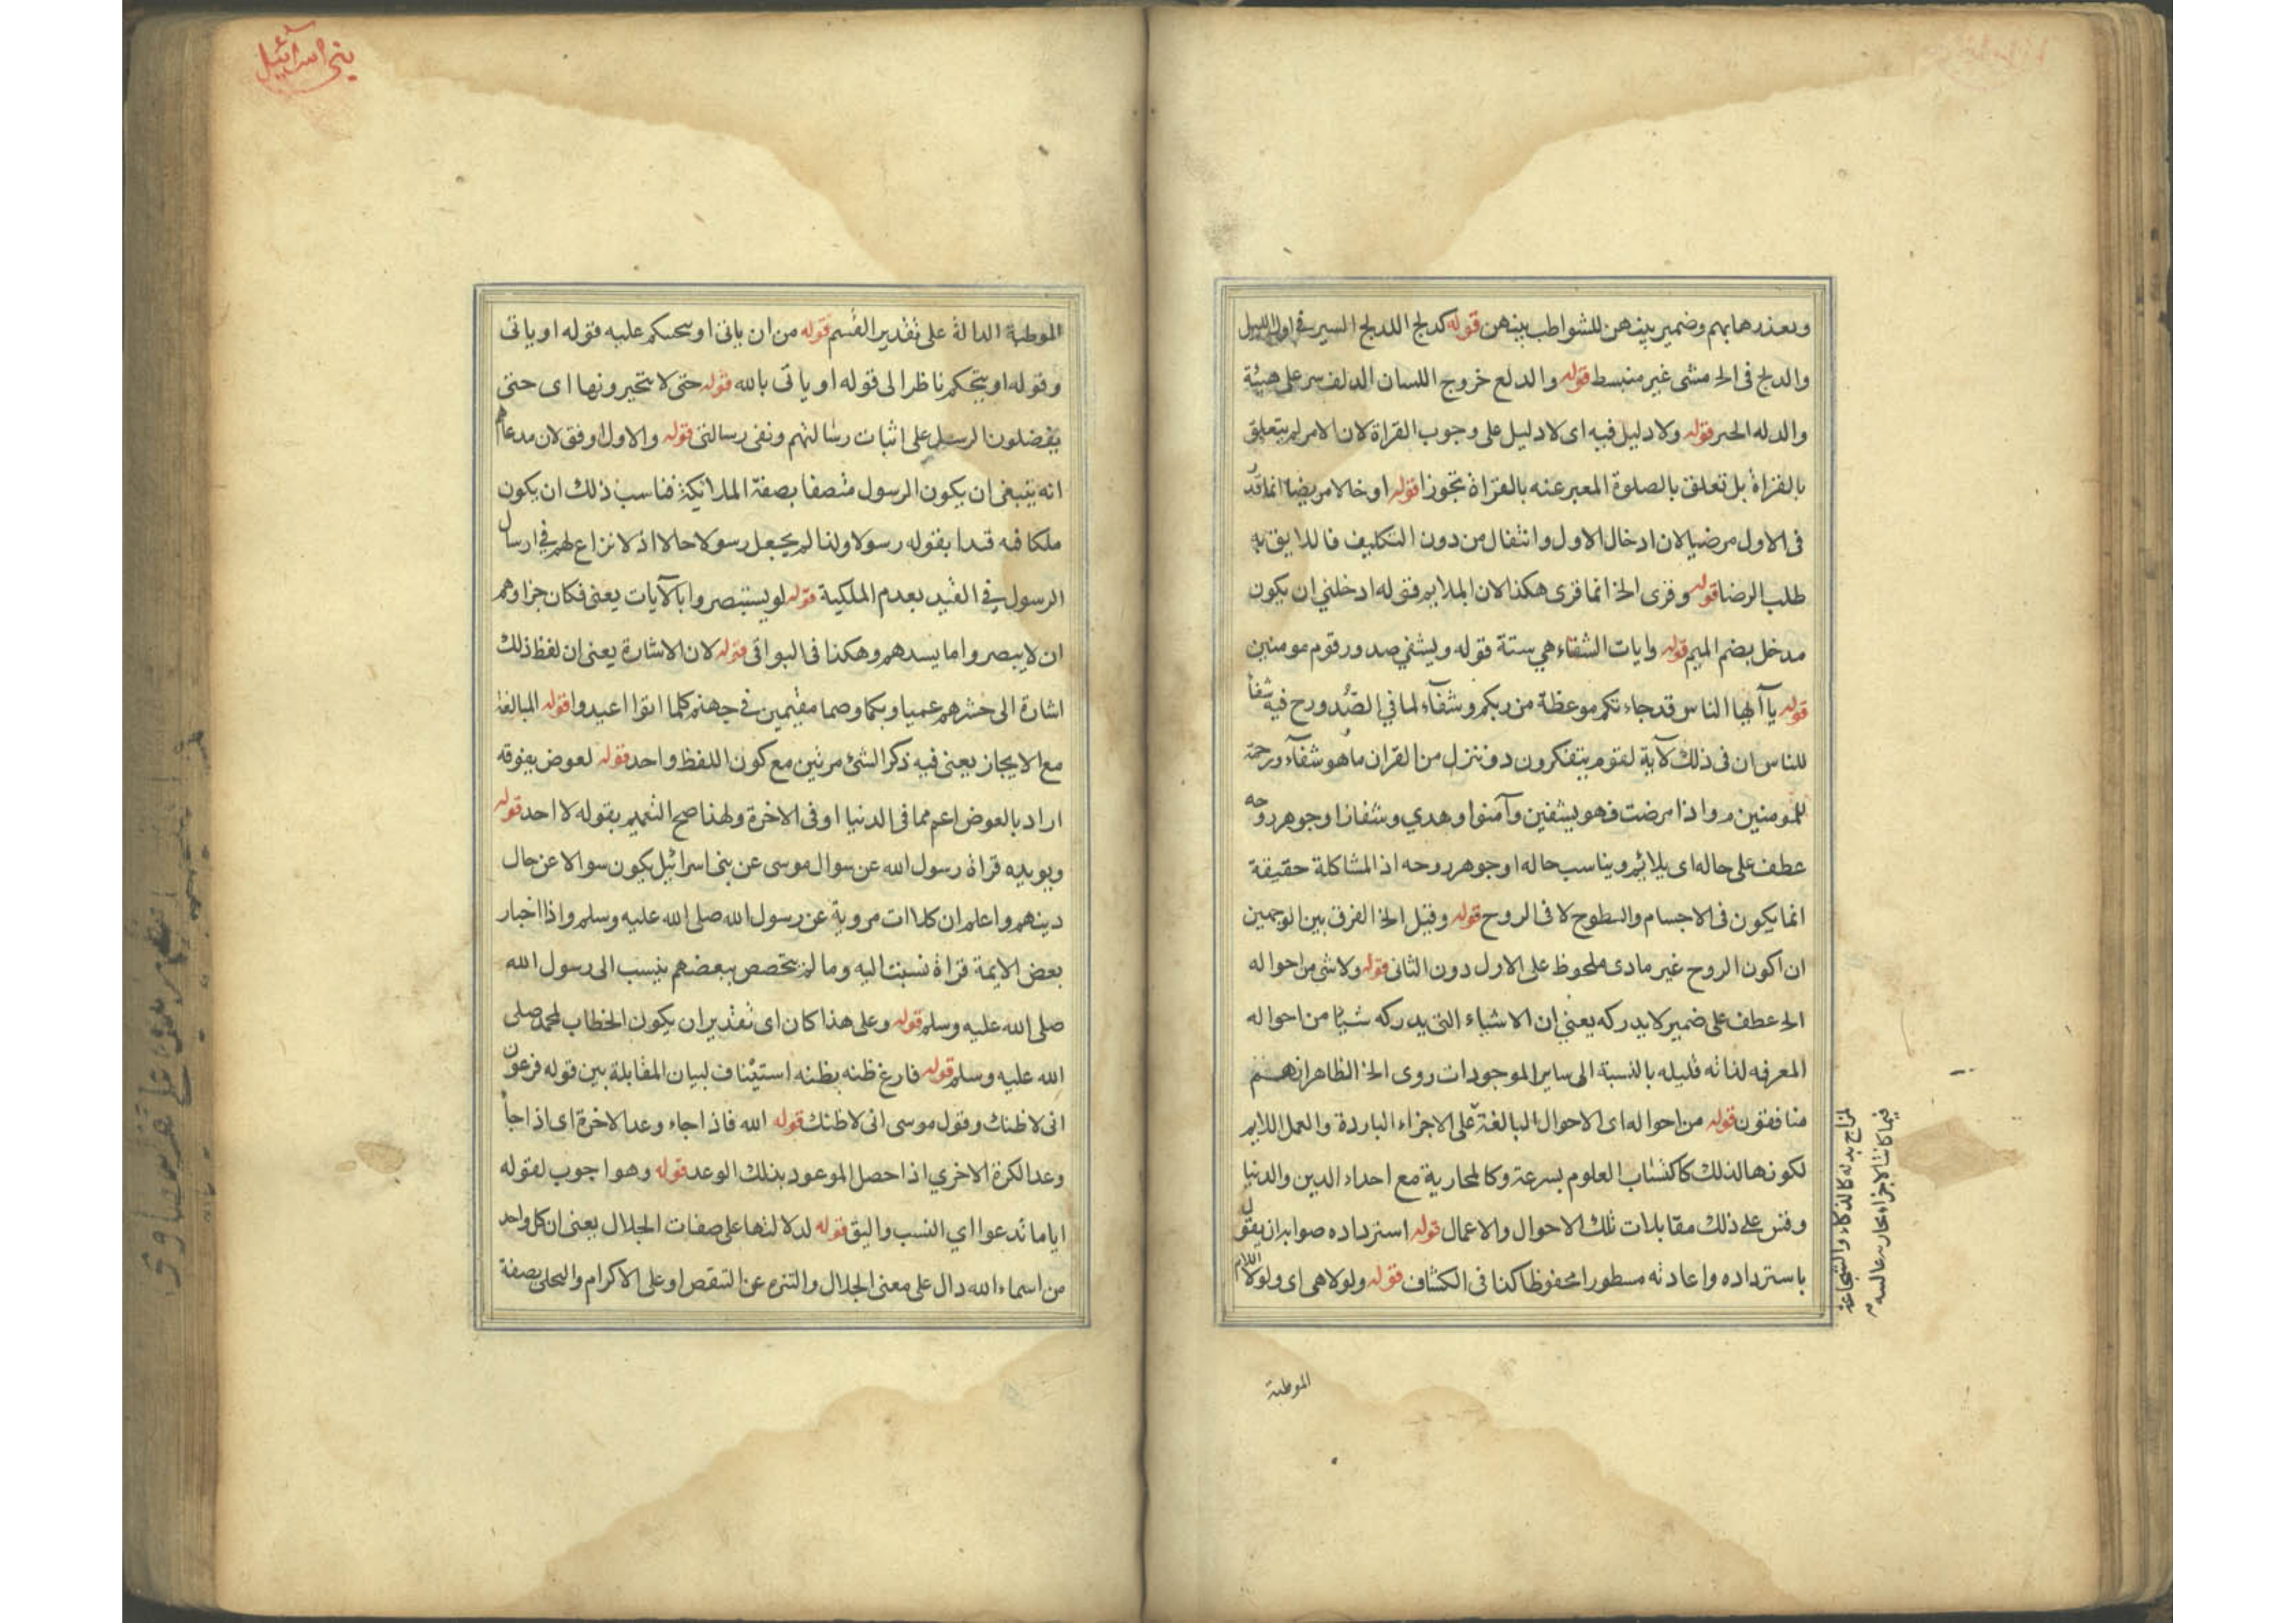 وبعذرها بهم وضمير بينهن للشواطب بينهن قوله كدلج الدلج السير في اول الليل
والدلج فى الخ مشى غير منبسط قوله والدلع خروج اللسان الدلف سر على هيئة
والدله الحىر قوله ولا دليل فيه اى لا دليل على وجوب القراة لان الامر لم يتعلق
بالقراة بل تعلق بالصلوة المعبر عنه بالقراة تجوزا قوله اوخالا مرىضا انما قد
فى الاول مرضيا لان ادخال الاول وانتقال من دون التكليف فالدايق به
طلب الرضا قوله وقرى الخ انما قرى هكذا لان الملايم قوله ادخلني ان يكون
مدخل بضم الميم قوله وايات الشفاء هي ستة قوله ويشفي صدور قوم مومنين
قوله يآ ايها الناس قد جاءتكم موعظة من ربكم وشفآء لما في الصّدورح فيه شفا
للناس ان فى ذلك لآية لقوم يتفكرون د وننزل من القران ما هو شفآء ورحمة
للمومنين م واذا مرضت فهو يشفين وآمنوا وهدي وشفاز اوجوهر روحه
عطف على حاله اى يلائم ويناسب حاله او جوهر روحه اذ المشاكلة حقيقة
انما يكون فى الاجسام والسطوح لا فى الروح قوله وقيل الخ الفرق بين الوجهين
ان اكون الروح غير مادى ملحوظ على الاول دون الثانى قوله ولا شى من احواله
الخ عطف على ضمير لا يدركه يعني ان الاشياء التى يدركه شيئا من احواله
المعرفه لذاته قليله بالنسبة الى ساير الموجودات روى الخ الظاهر انهم
منافقون قوله من احواله اى الاحوال البالغة على الاجزاء الباردة والعمل الدايم
لكونها لذلك كاكتساب العلوم بسرعة وكالمحاربة مع احداء الدين والدنيا
وقس على ذلك مقابلات تلك الاحوال والاعمال قوله استرداده صوابه ان يقول
باسترداده واعادته مسطورا محفوظا كذا فى الكشاف قوله ولولا هى اى ولولا اللام
لمزاج بدنه كالذكاء والشجاعة
فيما كانت الاجزاء
الموطئة
بنى اسرآئيل
الموطئة الدالة على تقدير القسم قوله من ان ياتى او يتحكم عليه قوله او ياتى
وقوله او يتحكم ناظر الى قوله او ياتى بالله قوله حتى لا يتخيرونها اى حتى
يفضلون الرسل على اثبات رسالتهم ونفى رسالتى قوله والاول اوفق لان مدعاهم
انه ينبغى ان يكون الرسول متصفا بصفة الملائكة فناسب ذلك ان يكون
ملكا فيه قيدا بقوله رسولا ولذا لم يجعل رسولا حالا اذ لا نزاع لهم في ارسال
الرسول في القيد بعدم الملكية قوله لو يستبصروا بالآيات يعنى فكان جزاوهم
ان لا يبصروا ما يسدهم وهكذا فى البواقى قوله لان الاشارة يعنى ان لفظ ذلك
اشارة الى حشرهم عميا وبكما وصما مقيمين في جهنم كلما اتوا اعيدوا قوله المبالغة
مع الايجاز يعنى فيه ذكر الشئ مرتين مع كون اللفظ واحد قوله لعوض يفوقه
اراد بالعوض اعم مما فى الدنيا او فى الاخرة ولهذا صح التعميم بقوله لا احد قوله
ويويده قراة رسول الله عن سوال موسى عن بنى اسرائيل يكون سوالا عن حال
دينهم واعلم ان كلاات مروية عن رسول الله صلى الله عليه وسلم واذا اخبار
بعض الايمة قراة نسبت اليه وما لم يتخصص ببعضهم ينسب الى رسول الله
صلى الله عليه وسلم قوله وعلى هذا كان اى تقدير ان يكون الخطاب لمحمد صلى
الله عليه وسلم قوله فارغ ظنه بظنه استيناف لبيان المقابلة بين قوله فرعون
انى لاظنك وقول موسى انى لاظنك قوله الله فاذا جاء وعد الاخرة اى اذا جا
وعد الكرة الاخري اذا حصل الموعود بذلك الوعد قوله وهوا جوب لقوله
اياما تدعوا اي النسب واليق قوله لدلالتها على صفات الجلال يعنى ان كل واحد
من اسماء الله دال على معنى الجلال والتنزه عن النقص او على الاكرام والتحلى بصفة